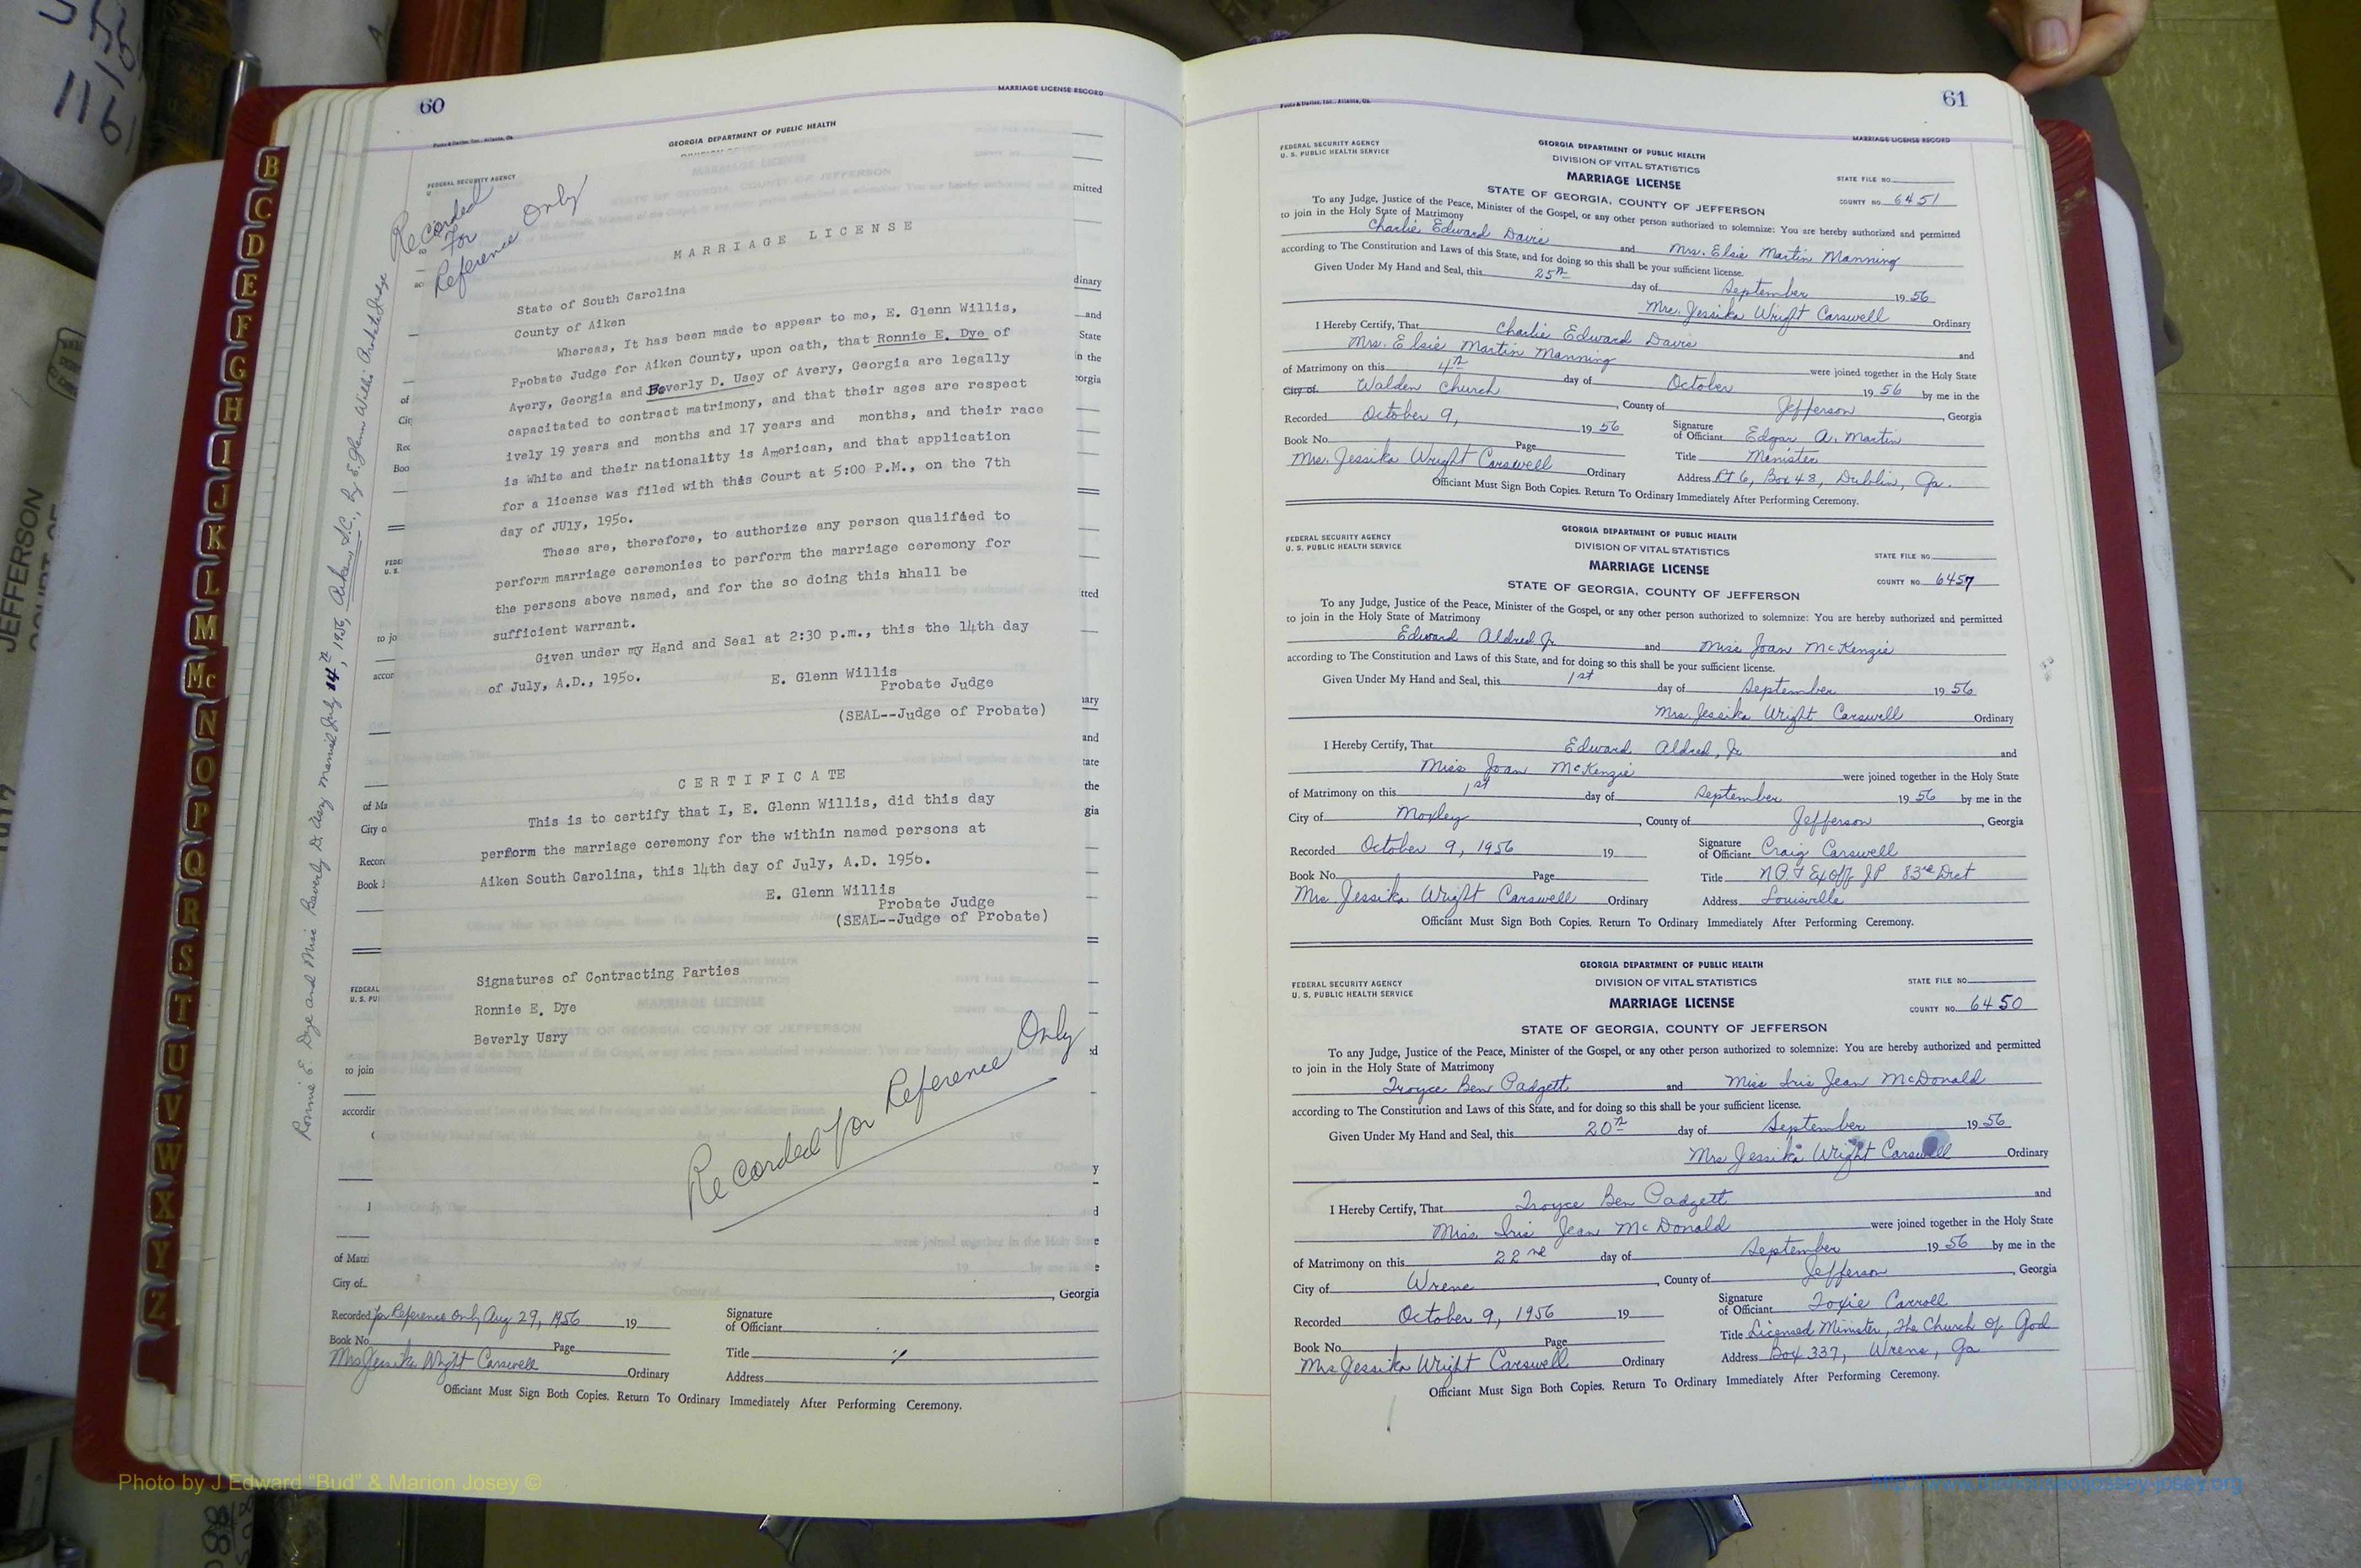 60
MARRIAGE LICENSE RECORD
GEORGIA DEPARTMENT OF PUBLIC HEALTH
FEDERAL SECURITY AGENCY
Recorded
For
Reference Only
MARRIAGE LICENSE
State of South Carolina
County of Aiken
Whereas, It has been made to appear to me, E. Glenn Willis,
Probate Judge for Aiken County, upon oath, that Ronnie E. Dye of
Avery, Georgia and Beverly D. Usey of Avery, Georgia are legally
capacitated to contract matrimony, and that their ages are respect
ively 19 years and months and 17 years and months, and their race
is White and their nationality is American, and that application
for a license was filed with this Court at 5:00 P.M., on the 7th
day of JUly, 1956.
These are, therefore, to authorize any person qualified to
perform marriage ceremonies to perform the marriage ceremony for
the persons above named, and for the so doing this hhall be
sufficient warrant.
Given under my Hand and Seal at 2:30 p.m., this the 14th day
of July, A.D., 1956.
E. Glenn Willis
Probate Judge
(SEAL--Judge of Probate)
CERTIFICATE
This is to certify that I, E. Glenn Willis, did this day
perform the marriage ceremony for the within named persons at
Aiken South Carolina, this 14th day of July, A.D. 1956.
E. Glenn Willis
Probate Judge
(SEAL--Judge of Probate)
Signatures of Contracting Parties
Ronnie E. Dye
Beverly Usry
Recorded for Reference Only
Georgia
Recorded for Reference Only Aug 29, 1956 19
Signature
of Officiant
Book No. Page
Title
Mrs Jessika Wright Carswell Ordinary
Address
Officiant Must Sign Both Copies. Return To Ordinary Immediately After Performing Ceremony.
Ronnie E. Dye and Miss Beverly D. Usry married July 14th, 1956, Aiken S.C., by E. Glenn Willis Probate Judge
B
C
D
E
F
G
H
I
J
K
L
M
Mc
N
O
P
Q
R
S
T
U
V
W
X
Y
Z
61
MARRIAGE LICENSE RECORD
FEDERAL SECURITY AGENCY
U. S. PUBLIC HEALTH SERVICE
GEORGIA DEPARTMENT OF PUBLIC HEALTH
DIVISION OF VITAL STATISTICS
MARRIAGE LICENSE
STATE OF GEORGIA, COUNTY OF JEFFERSON
STATE FILE NO.
COUNTY NO. 6451
To any Judge, Justice of the Peace, Minister of the Gospel, or any other person authorized to solemnize: You are hereby authorized and permitted
to join in the Holy State of Matrimony
Charlie Edward Davis and Mrs. Elsie Martin Manning
according to The Constitution and Laws of this State, and for doing so this shall be your sufficient license.
Given Under My Hand and Seal, this 25th day of September 19 56
Mrs. Jessika Wright Carswell Ordinary
I Hereby Certify, That Charlie Edward Davis and
Mrs. Elsie Martin Manning were joined together in the Holy State
of Matrimony on this 4th day of October 19 56 by me in the
City of Walden Church, County of Jefferson, Georgia
Recorded October 9, 19 56
Signature
of Officiant Edgar A. Martin
Book No. Page
Title Minister
Mrs. Jessika Wright Carswell Ordinary
Address Rt 6, Box 48, Dublin, Ga.
Officiant Must Sign Both Copies. Return To Ordinary Immediately After Performing Ceremony.
FEDERAL SECURITY AGENCY
U. S. PUBLIC HEALTH SERVICE
GEORGIA DEPARTMENT OF PUBLIC HEALTH
DIVISION OF VITAL STATISTICS
MARRIAGE LICENSE
STATE OF GEORGIA, COUNTY OF JEFFERSON
STATE FILE NO.
COUNTY NO. 6457
To any Judge, Justice of the Peace, Minister of the Gospel, or any other person authorized to solemnize: You are hereby authorized and permitted
to join in the Holy State of Matrimony
Edward Aldred Jr. and Miss Joan McKenzie
according to The Constitution and Laws of this State, and for doing so this shall be your sufficient license.
Given Under My Hand and Seal, this 1st day of September 19 56
Mrs. Jessika Wright Carswell Ordinary
I Hereby Certify, That Edward Aldred, Jr and
Miss Joan McKenzie were joined together in the Holy State
of Matrimony on this 1st day of September 19 56 by me in the
City of Moxley, County of Jefferson, Georgia
Recorded October 9, 1956 19
Signature
of Officiant Craig Carswell
Book No. Page
Title N.P. & Ex Off JP 83rd Dist
Mrs. Jessika Wright Carswell Ordinary
Address Louisville
Officiant Must Sign Both Copies. Return To Ordinary Immediately After Performing Ceremony.
FEDERAL SECURITY AGENCY
U. S. PUBLIC HEALTH SERVICE
GEORGIA DEPARTMENT OF PUBLIC HEALTH
DIVISION OF VITAL STATISTICS
MARRIAGE LICENSE
STATE OF GEORGIA, COUNTY OF JEFFERSON
STATE FILE NO.
COUNTY NO. 6450
To any Judge, Justice of the Peace, Minister of the Gospel, or any other person authorized to solemnize: You are hereby authorized and permitted
to join in the Holy State of Matrimony
Troyce Ben Padgett and Miss Iris Jean McDonald
according to The Constitution and Laws of this State, and for doing so this shall be your sufficient license.
Given Under My Hand and Seal, this 20th day of September 19 56
Mrs Jessika Wright Carswell Ordinary
I Hereby Certify, That Troyce Ben Padgett and
Miss Iris Jean McDonald were joined together in the Holy State
of Matrimony on this 22nd day of September 19 56 by me in the
City of Wrens, County of Jefferson, Georgia
Recorded October 9, 1956 19
Signature
of Officiant Toxie Carroll
Book No. Page
Title Licensed Minister, The Church of God
Mrs Jessika Wright Carswell Ordinary
Address Box 337, Wrens, Ga
Officiant Must Sign Both Copies. Return To Ordinary Immediately After Performing Ceremony.
Photo by J Edward "Bud" & Marion Josey ©
JEFFERSON